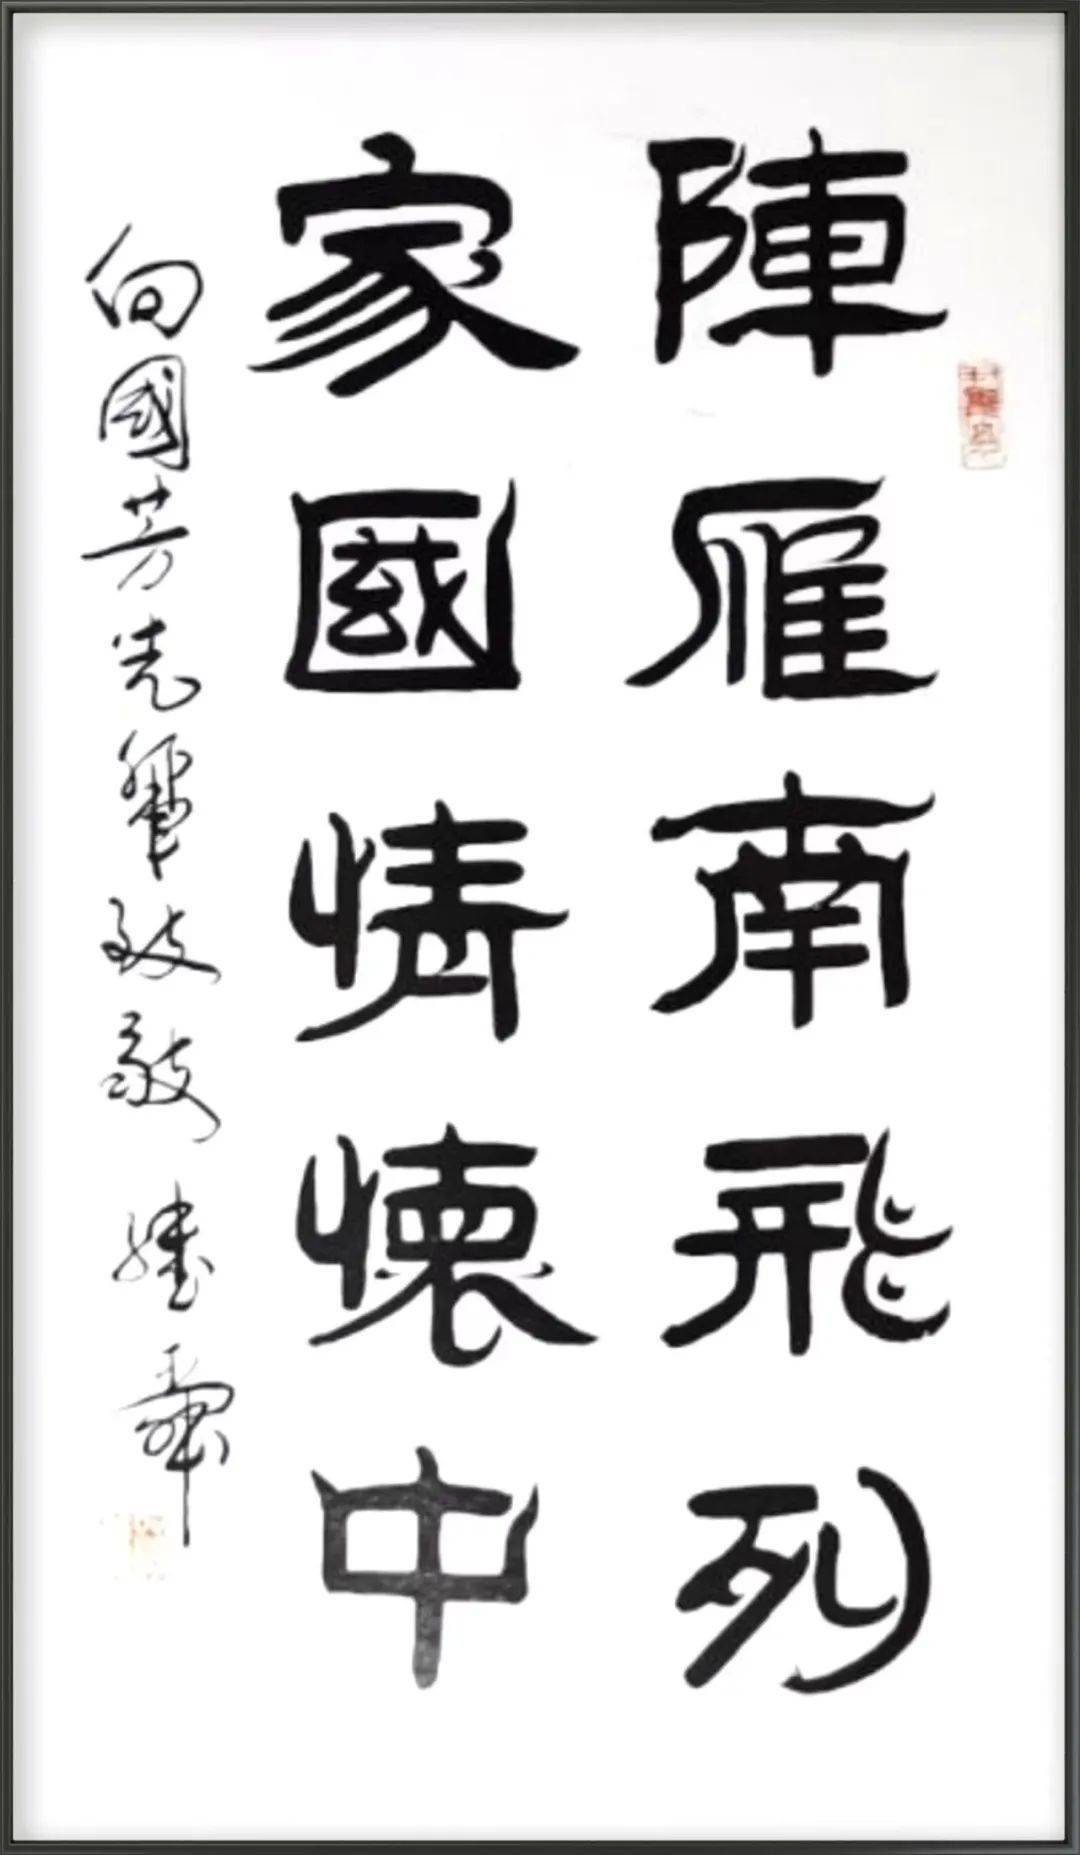 陣雁南飛列
家國情懷中
向國芳先輩致敬